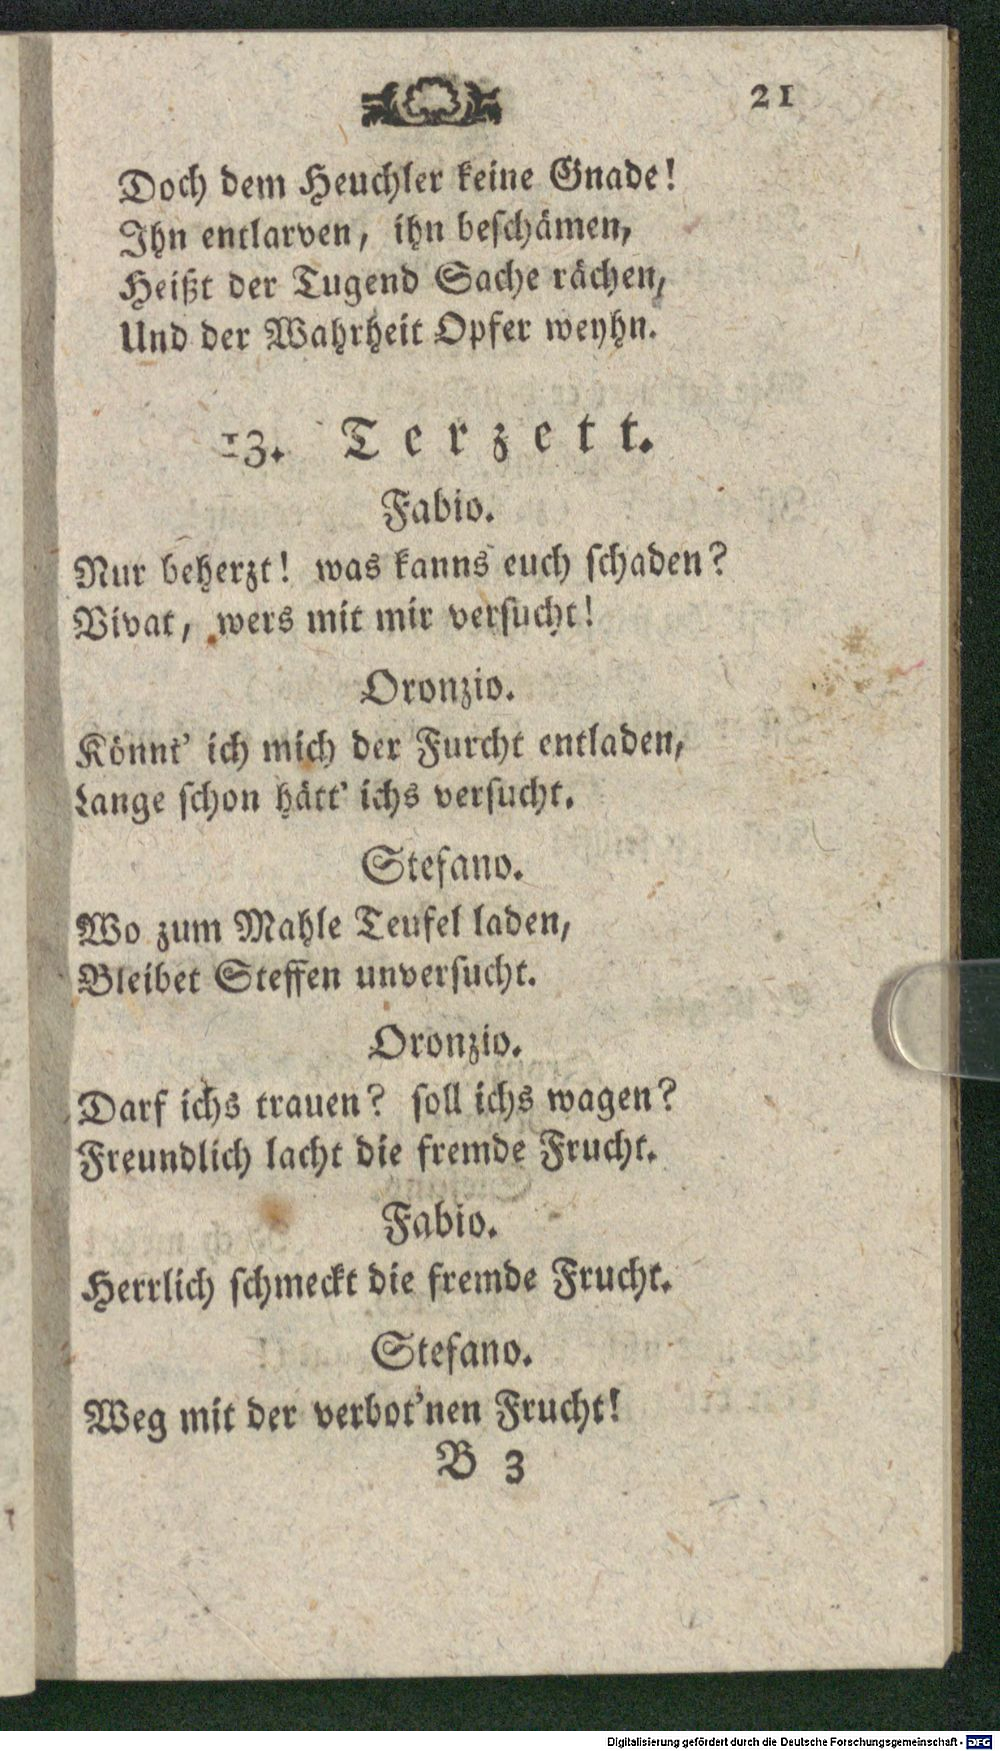 21
Doch dem Heuchler keine Gnade!
Ihn entlarven, ihn beschämen,
Heißt der Tugend Sache rächen,
Und der Wahrheit Opfer weyhn.
13. Terzett.
Fabio.
Nur beherzt! was kanns euch schaden?
Vivat, wers mit mir versucht!
Oronzio.
Könnt' ich mich der Furcht entladen,
Lange schon hätt' ichs versucht.
Stefano.
Wo zum Mahle Teufel laden,
Bleibet Steffen unversucht.
Oronzio.
Darf ichs trauen? soll ichs wagen?
Freundlich lacht die fremde Frucht.
Fabio.
Herrlich schmeckt die fremde Frucht.
Stefano.
Weg mit der verbot'nen Frucht!
B 3
Digitalisierung gefördert durch die Deutsche Forschungsgemeinschaft - DFG